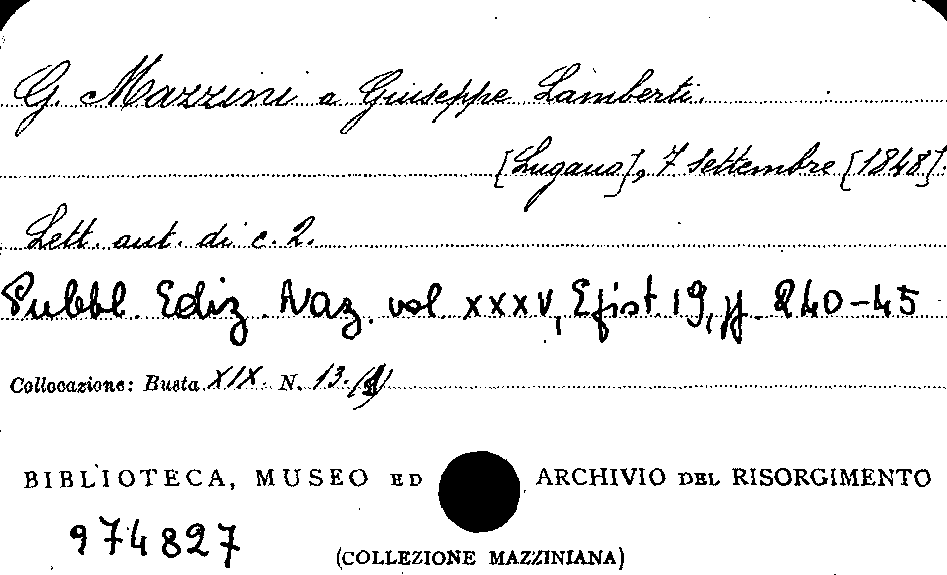 G. Mazzini a Giuseppe Lamberti.
[Lugano], 7 Settembre [1848].
Lett. aut. di c. 2.
Pubbl. Ediz. Naz. vol XXXV, Epist 19, pp. 240-45
Collocazione: Busta XIX. N. 13.
BIBLIOTECA, MUSEO ED ARCHIVIO DEL RISORGIMENTO
974827
(COLLEZIONE MAZZINIANA)